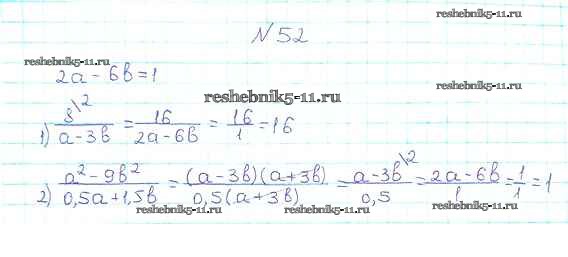 reshebnik5-11.ru
№ 52
reshebnik5-11.ru
2a - 6b = 1
reshebnik5-11.ru
reshebnik5-11.ru
1) 8\2 / (a - 3b) = 16 / (2a - 6b) = 16/1 = 16
2) (a² - 9b²) / (0,5a + 1,5b) = (a - 3b)(a + 3b) / 0,5(a + 3b) = (a - 3b)\2 / 0,5 = (2a - 6b) / 1 = 1/1 = 1
reshebnik5-11.ru reshebnik5-11.ru reshebnik5-11.ru